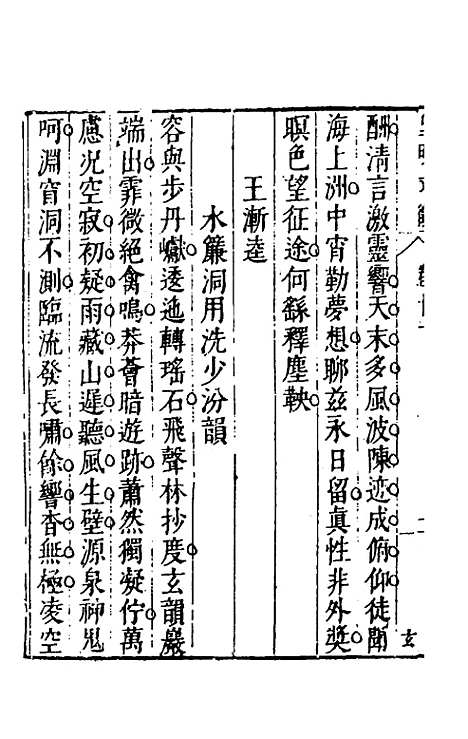 酬清言激靈響天末多風波陳迹成俯仰徒聞
海上洲中宵勤夢想聊兹永日留眞性非外獎
暝色望征途何繇釋塵鞅
王漸逵
水簾洞用洗少汾韻
容與步丹巘逶迤轉瑤石飛聲林抄度玄韻巖
端出霏微絕禽鳴莽薈暗遊跡蕭然獨凝佇萬
慮况空寂初疑雨藏山遲聽風生壁源泉神鬼
呵淵窅洞不測臨流發長嘯餘響杳無極凌空
玄